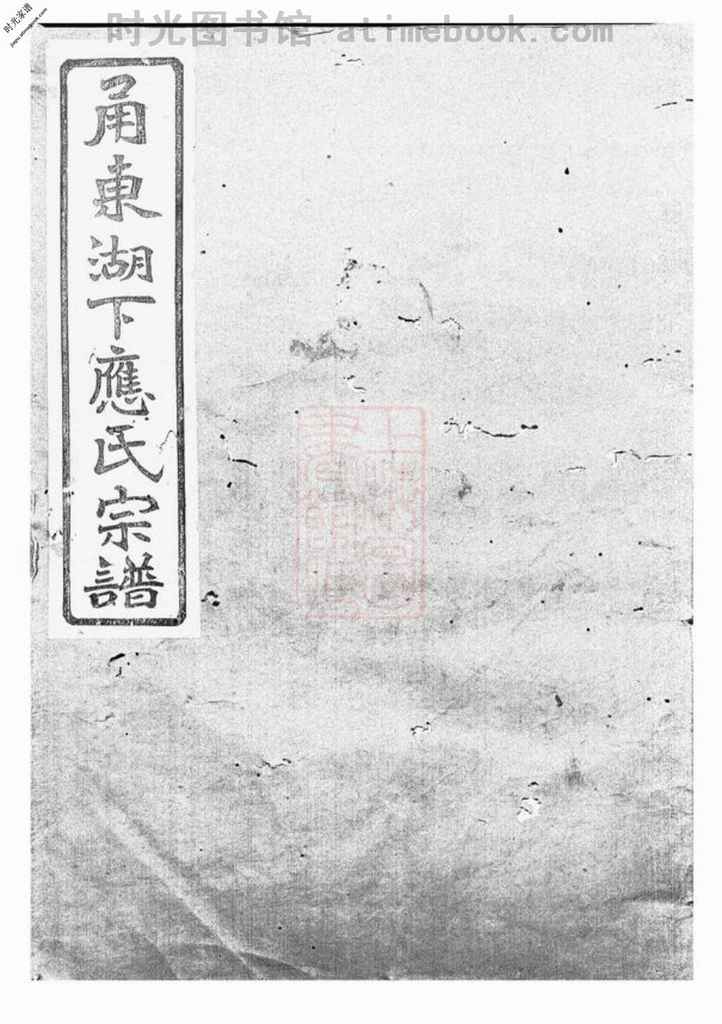 时光图书馆 atimebook.com
时光家谱
甬東湖下應氏宗譜